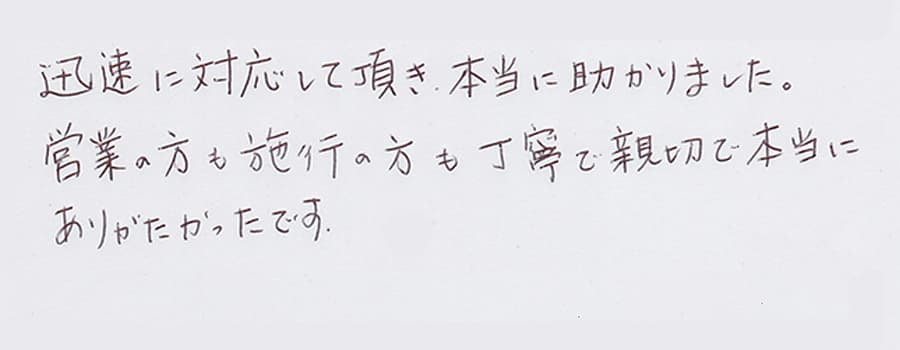 迅速に対応して頂き.本当に助かりました。
営業の方も施行の方も丁寧で親切で本当に
ありがたかったです.